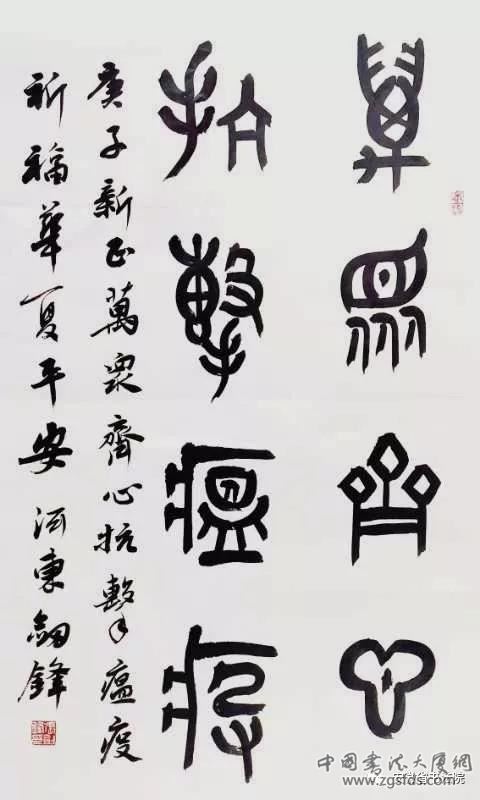 萬眾齊心
抗擊瘟疫
庚子新正萬衆齊心抗擊瘟疫
祈福華夏平安 河東劍鋒
中國書法大廈網
www.zgsfds.com